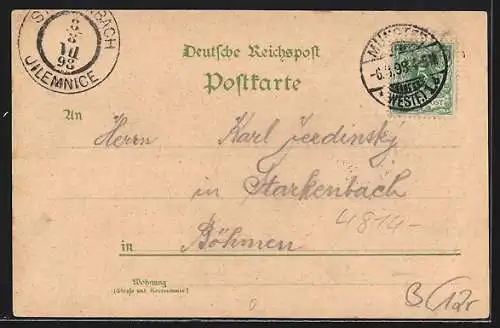 JILEMNICE
VII
98
Deutsche Reichspost
Postkarte
MÜNSTER
(WESTF.)
An
Herrn Karl Jerdinsky
in Starkenbach
4814-
in Böhmen
Wohnung
(Straße und Hausnummer)